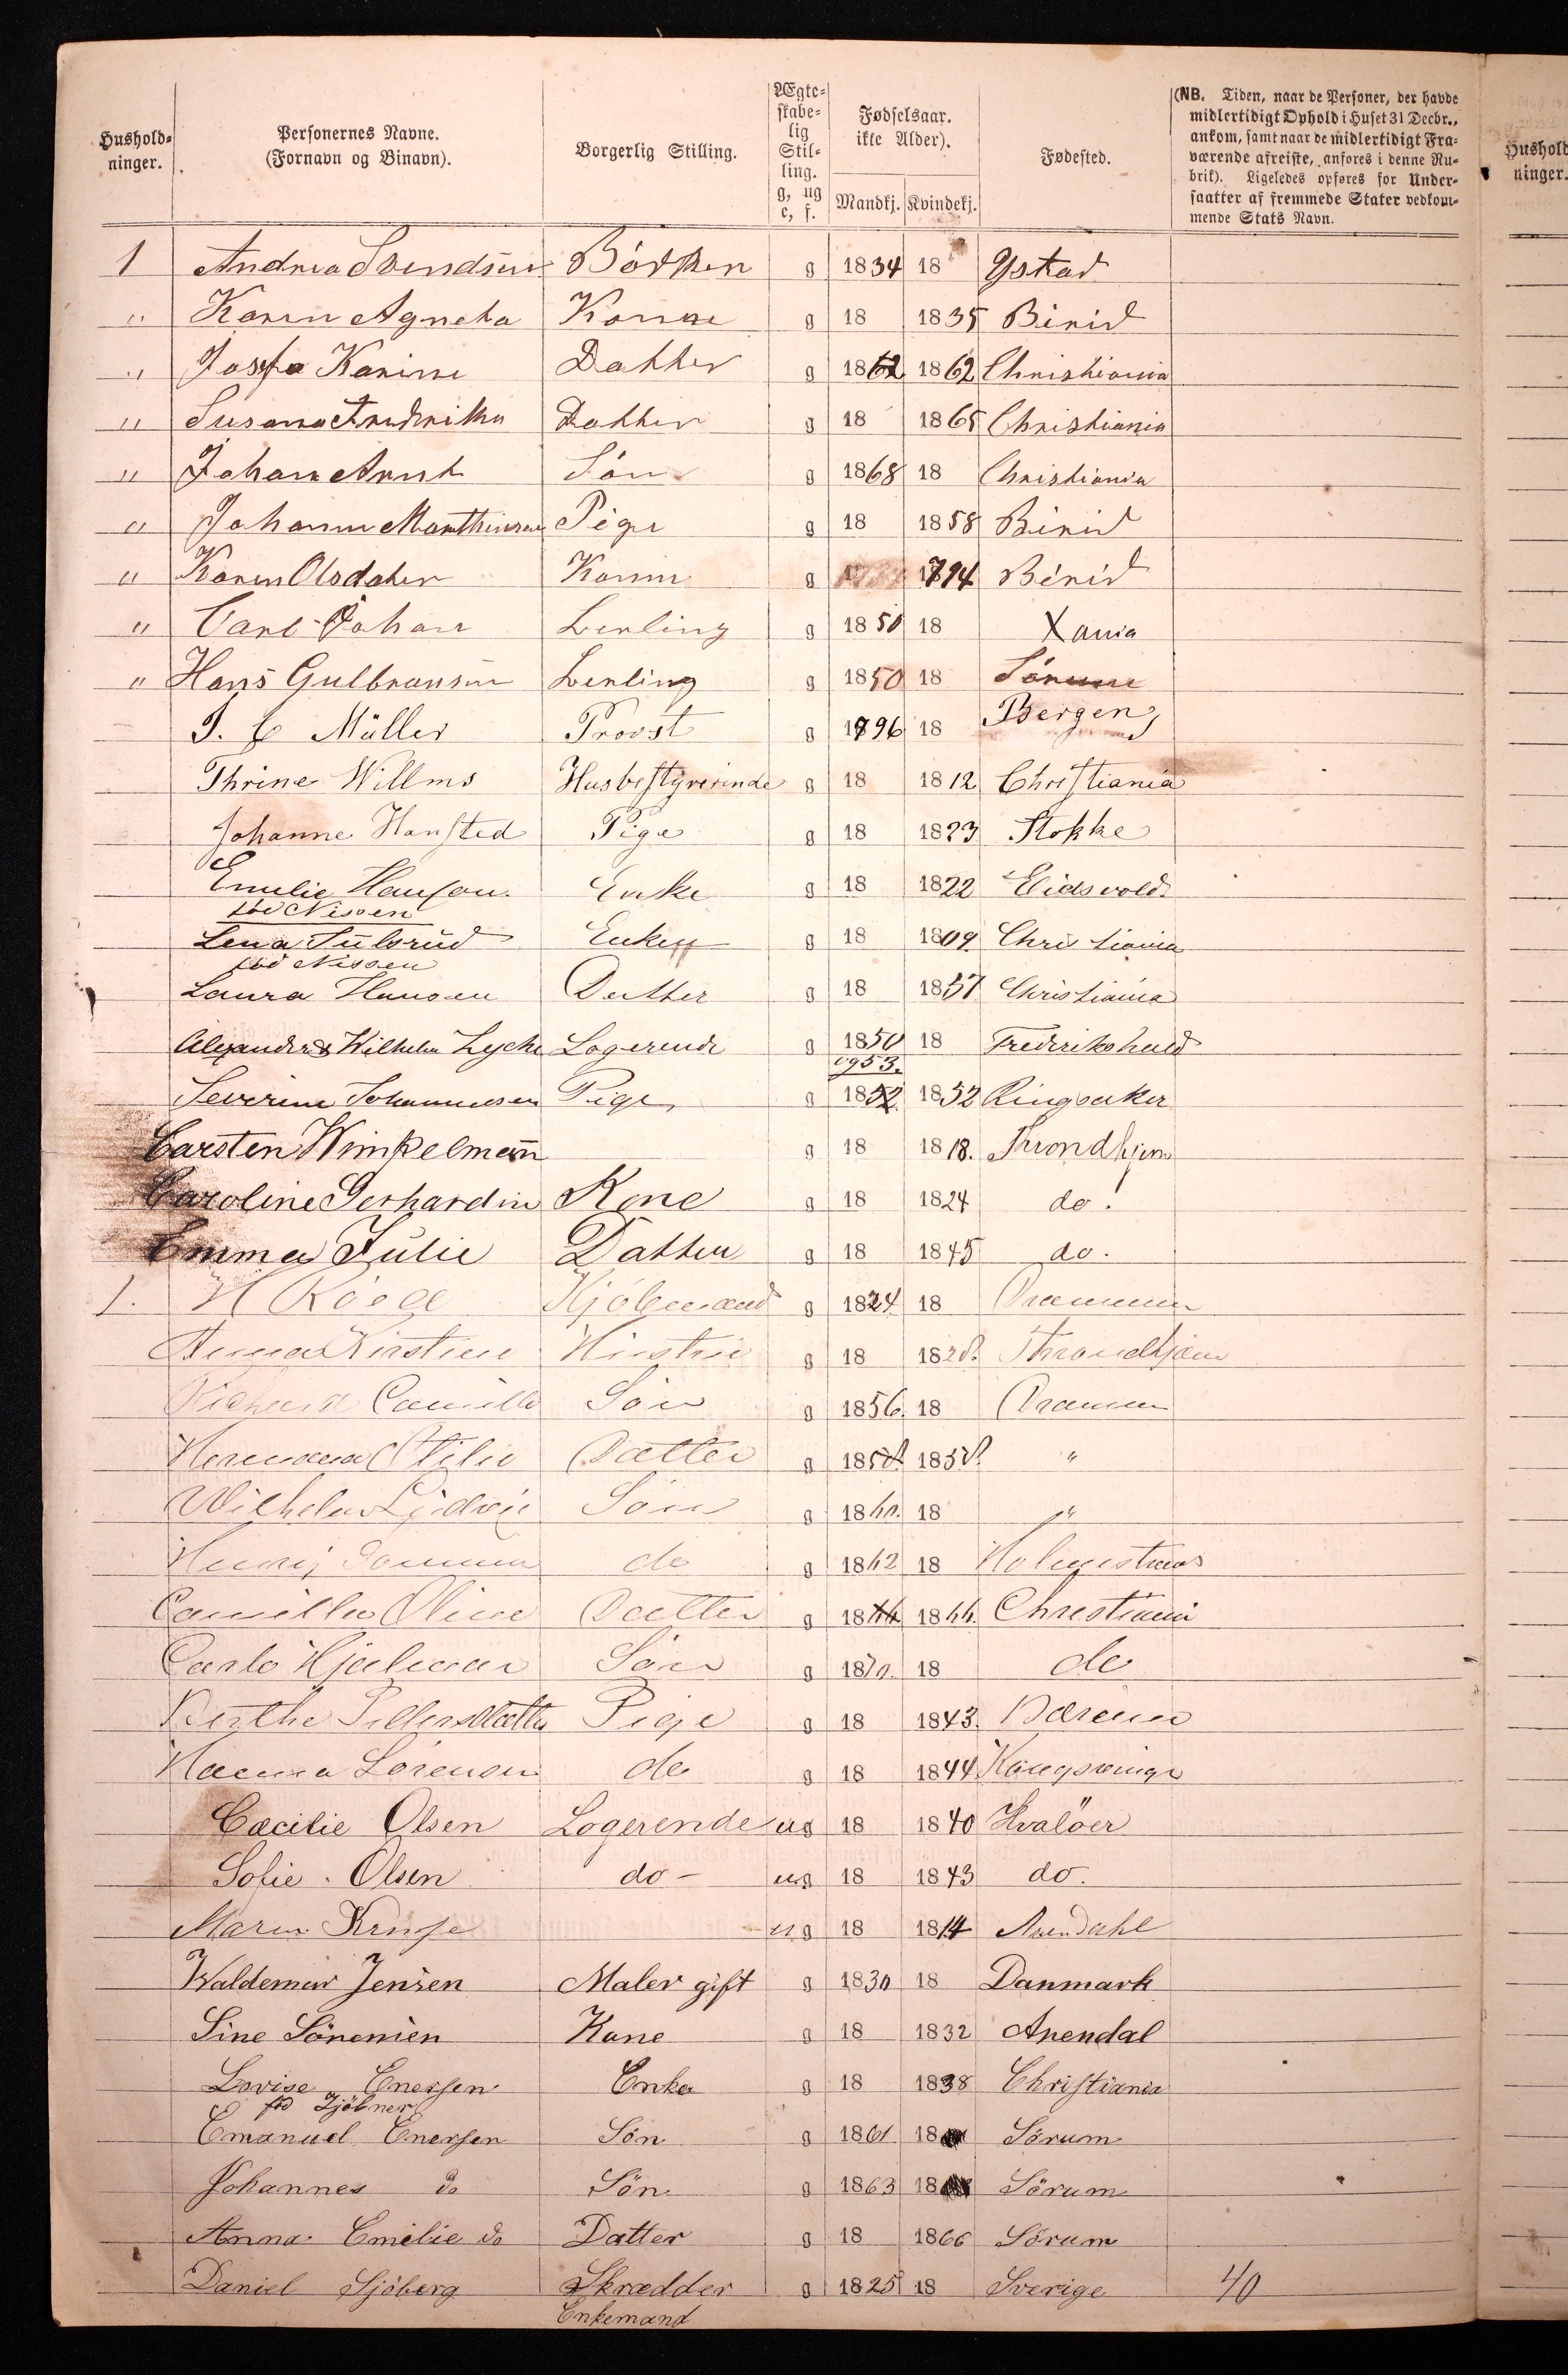 Hushold-
ninger.
Personernes Navne.
(Fornavn og Binavn).
Borgerlig Stilling.
Ægte-
skabe-
lig
Stil-
ling.
g, ug
e, f.
Fødselsaar.
ikke Alder).
Mandkj. Kvindekj.
Fødested.
(NB. Tiden, naar de Personer, der havde
midlertidigt Ophold i Huset 31 Decbr.,
ankom, samt naar de midlertidigt Fra-
værende afreiste, anføres i denne Ru-
brik). Ligeledes opføres for Under-
saatter af fremmede Stater vedkom-
mende Stats Navn.
Hushold
ninger.
1 Andrea Svendsen Bödker g 1834 18 Ystad
" Karen Agneta Konne g 18 1835 Birid
" Josefa Karine Datter g 1862 1862 Christiania
" Susana Fredrikka Datter g 18 1865 Christiania
" Johan Arnt Sön g 1868 18 Christiania
" Johanne Marthinsen Pige g 18 1858 Birid
" Karen Olsdater Konne g 1794 Birid
" Carl Johan Lerling g 1850 18 Xania
" Hans Gulbransen Lerling g 1850 18 Sörum
J. C Müller Provst g 1796 18 Bergen
Thrine Willms Husbestyrerinde g 18 1812 Christiania
Johanne Hansted Pige g 18 1823 Stokke
Emilie Hansen Enke g 18 1822 Eidsvold
föd Nissen
Lena Sulsrud Enke g 18 1809. Christiania
föd Nissen
Laura Hansen Datter g 18 1857 Christiania
Alexander Wilhelm Lyche Logerende g 1850 18 Frederikshald
1953.
Severine Johannesen Pige g 1852 1852 Ringsaker
Carsten Winkelmann g 18 1818. Throndhjem
Caroline Gerhardin Kone g 18 1824 do.
Emma Julie Datter g 18 1845 do.
1. H Röed Kjöbmand g 1824 18 Drammen
Anna Kirstine Hustru g 18 1828. Throndhjem
Richard Camillo Sön g 1856. 18 Drammen
Hermana Otilie Datter g 1858 1858. "
Wilhelm Ludvig Sön g 1860. 18 "
Henrij do g 1862 18 Holmestrand
Camilla Oline Datter g 1866 1866. Christiania
Carlo Hjalmar Sön g 1870. 18 do
Berthe Pedersdatter Pige g 18 1843. Bærum
Hanna Lorensen do g 18 1844 Kongsvinger
Cæcilie Olsen Logerende ug 18 1840 Hvalöer
Sofie. Olsen do - ug 18 1843 do.
Maren Kruse ug 18 1814 Arendahl
Waldemar Jensen Maler gift g 1830 18 Danmark
Sine Sörensen Kone g 18 1832 Arendal
Lovise Enersen Enke g 18 1838 Christiania
fød Zjöbner
Emanuel Enersen Sön g 1861 18 Sörum
Johannes do Sön g 1863 18 Sörum
Anna Emilie do Datter g 18 1866 Sörum
Daniel Sjöberg Skrædder g 1825 18 Sverige 40
Enkemand